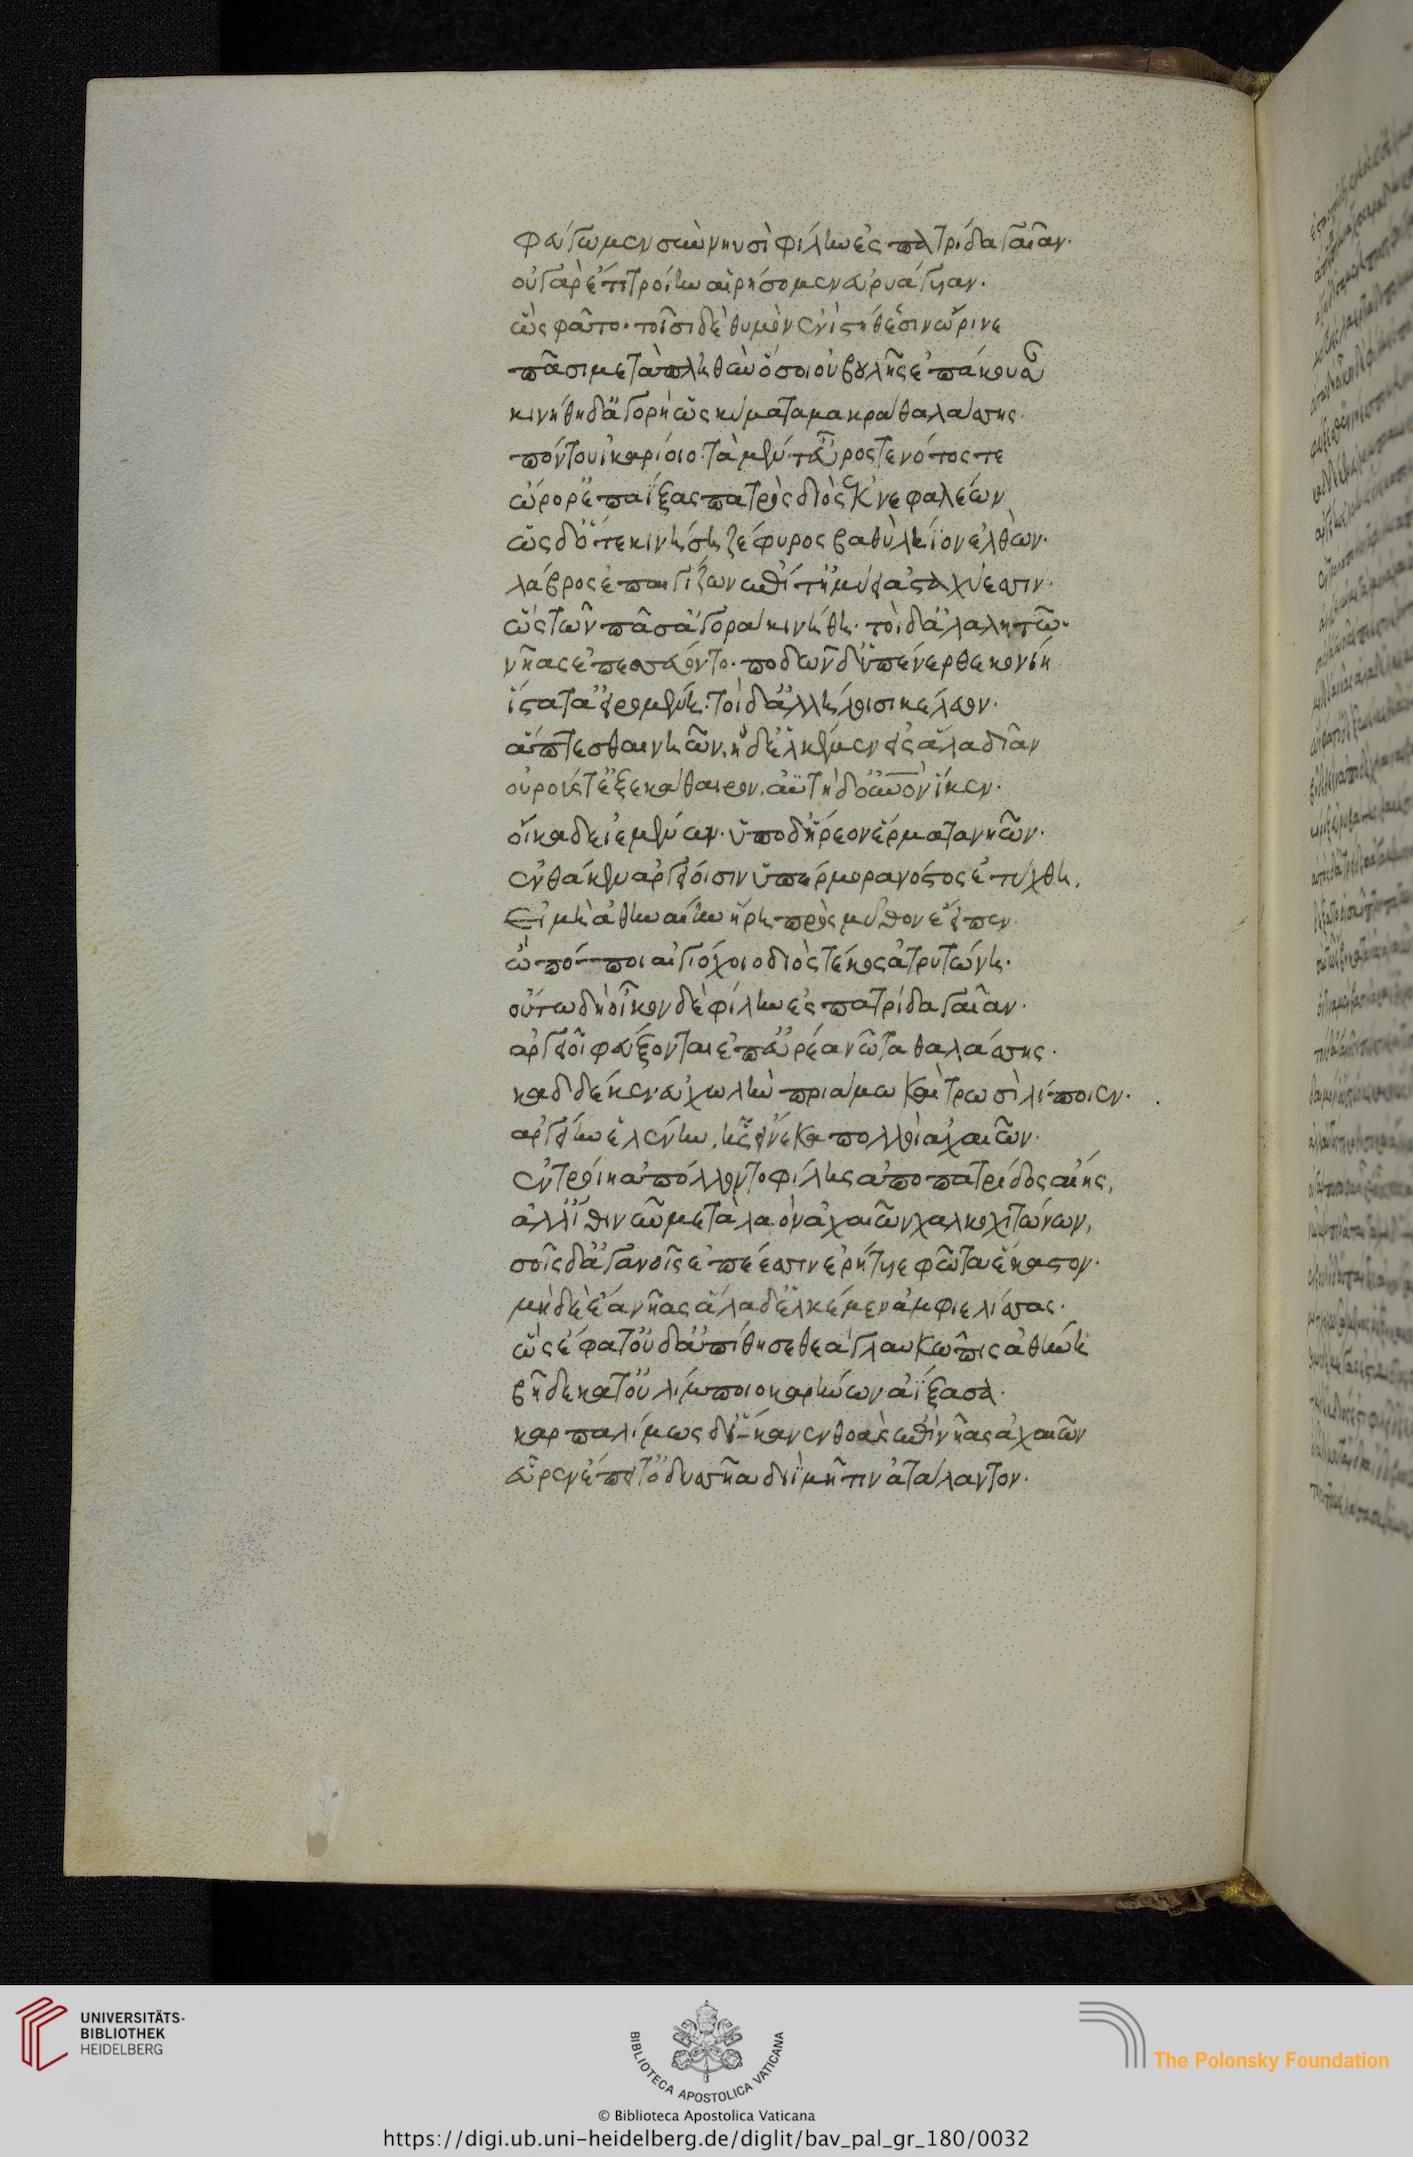 φεύγωμεν σὺν νηυσὶ φίλην ἐς πατρίδα γαῖαν·
οὐ γὰρ ἔτι τροίην αἱρήσομεν εὐρυάγυιαν·
ὣς φάτο· τοῖσι δὲ θυμὸν ἐνὶ στήθεσσιν ὄρινε
πᾶσι μετὰ πληθὺν ὅσοι οὐ βουλῆς ἐπάκουσαν
κινήθη δ' ἀγορὴ ὡς κύματα μακρὰ θαλάσσης·
πόντου ἰκαρίοιο· τὰ μέν τ' εὖρός τε νότός τε
ὤρορ' ἐπαΐξας πατρὸς διὸς ἐκ νεφαλέων
ὡς δ' ὅτε κινήση ζέφυρος βαθὺ λήϊον ἐλθὼν·
λάβρος ἐπαιγίζων ἐπί τ' ἠμύει ἀσταχύεσσιν·
ὣς τῶν πᾶσ' ἀγορὰ κινήθη· τοὶ δ' ἀλαλητῶ·
νῆας ἐπεσσεύοντο· ποδῶν δ' ὑπένερθε κονίη
ἵστατ' ἀειρομένη· τοὶ δ' ἀλλήλοισι κέλευον·
ἅπτεσθαι νηῶν, ἠδ' ἑλκέμεν εἰς ἅλα δῖαν
οὐρούς τ' ἐξεκάθαιρον, ἀϋτὴ δ' οὐρανὸν ἷκεν·
οἴκαδε ἱεμένων· ὑπὸ δ' ἥρεον ἕρματα νηῶν·
ἔνθά κεν ἀργείοισιν ὑπέρμορα νόστος ἐτύχθη,
Εἰ μὴ ἀθηναίην ἥρη πρὸς μῦθον ἔειπεν·
ὢ πόποι αἰγιόχοιο διὸς τέκος ἀτρυτώνη·
οὕτω δὴ οἶκον δὲ φίλην ἐς πατρίδα γαῖαν·
ἀργεῖοι φεύξονται ἐπ' εὐρέα νῶτα θαλάσσης·
καδδέ κεν εὐχωλὴν πριάμω καὶ τρωσὶ λίποιεν·
ἀργείην ἑλένην, ἧς εἵνεκα πολλοὶ ἀχαιῶν·
ἐν τροίη ἀπόλλοντο φίλης ἀπο πατρίδος αἴης,
ἀλλ' ἴθι νῦν μετὰ λαὸν ἀχαιῶν χαλκοχιτώνων,
σοῖς δ' ἀγανοῖς ἐπέεσσιν ἐρήτυε φῶτα ἕκαστον·
μηδὲ ἔα νῆας ἅλαδ' ἑλκέμεν ἀμφιελίσσας·
ὣς ἔφατ' οὐδ' ἀπίθησε θεὰ γλαυκῶπις ἀθήνη
βῆ δὲ κατ' οὐλύμποιο καρήνων ἀΐξασα·
καρπαλίμως δ' ἵκανεν θοὰς ἐπὶ νῆας ἀχαιῶν
εὗρεν ἔπειτ' ὀδυσσῆα διῒ μῆτιν ἀτάλαντον·
UNIVERSITÄTS-
BIBLIOTHEK
HEIDELBERG
BIBLIOTECA APOSTOLICA VATICANA
© Biblioteca Apostolica Vaticana
The Polonsky Foundation
https://digi.ub.uni-heidelberg.de/diglit/bav_pal_gr_180/0032